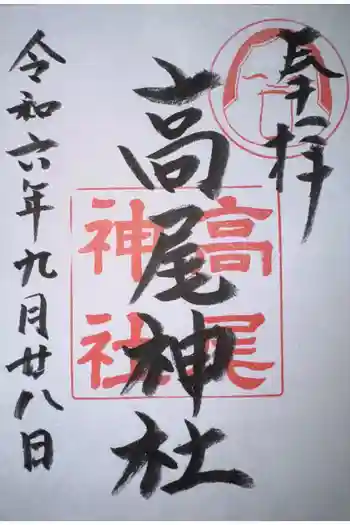 奉拝
高尾神社
高尾
神社
令和六年九月廿八日